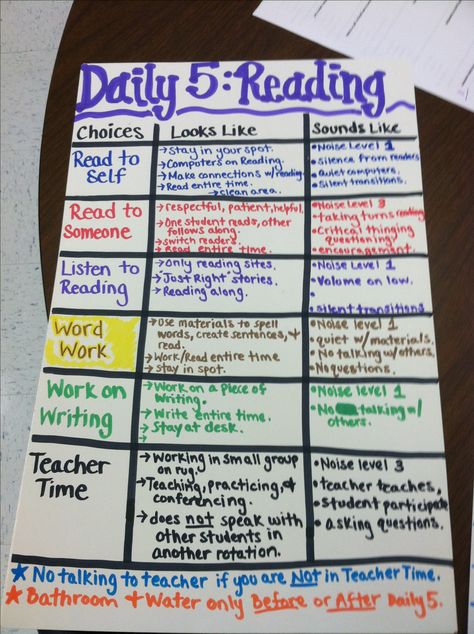 Daily 5: Reading
Choices
Looks Like
Sounds Like
Read to
Self
→ Stay in your spot.
→ Computers on Reading.
→ Make connections w/reading.
→ Read entire time.
→ clean area.
• Noise Level 1
• silence from readers
• quiet computers.
• Silent transitions.
Read to
Someone
→ respectful, patient, helpful.
→ One student reads, other
follows along.
→ switch readers.
→ Read entire time.
• Noise Level 3
• taking turns reading
• Critical thinging
questioning,
• encouragement.
Listen to
Reading
→ Only reading sites.
→ Just Right stories.
→ Reading along.
• Noise Level 1
• Volume on low.
•
• silent transitions
Word
Work
→ Use materials to spell
words, create sentences, +
read.
→ Work/Read entire time
→ Stay in spot.
• Noise level 1
• quiet w/materials.
• No talking w/others.
• No questions.
Work on
Writing
→ Work on a piece of
Writing.
→ Write entire time.
→ Stay at desk.
→
• Noise level 1
• No talking w/
others.
Teacher
Time
→ Working in small group
on rug.
→ Teaching, practicing, +
conferencing.
→ does not speak with
other students in
another rotation.
• Noise level 3
• teacher teaches,
• student participate
• asking questions.
★ No talking to teacher if you are Not in Teacher Time.
★ Bathroom + Water only Before or After Daily 5.